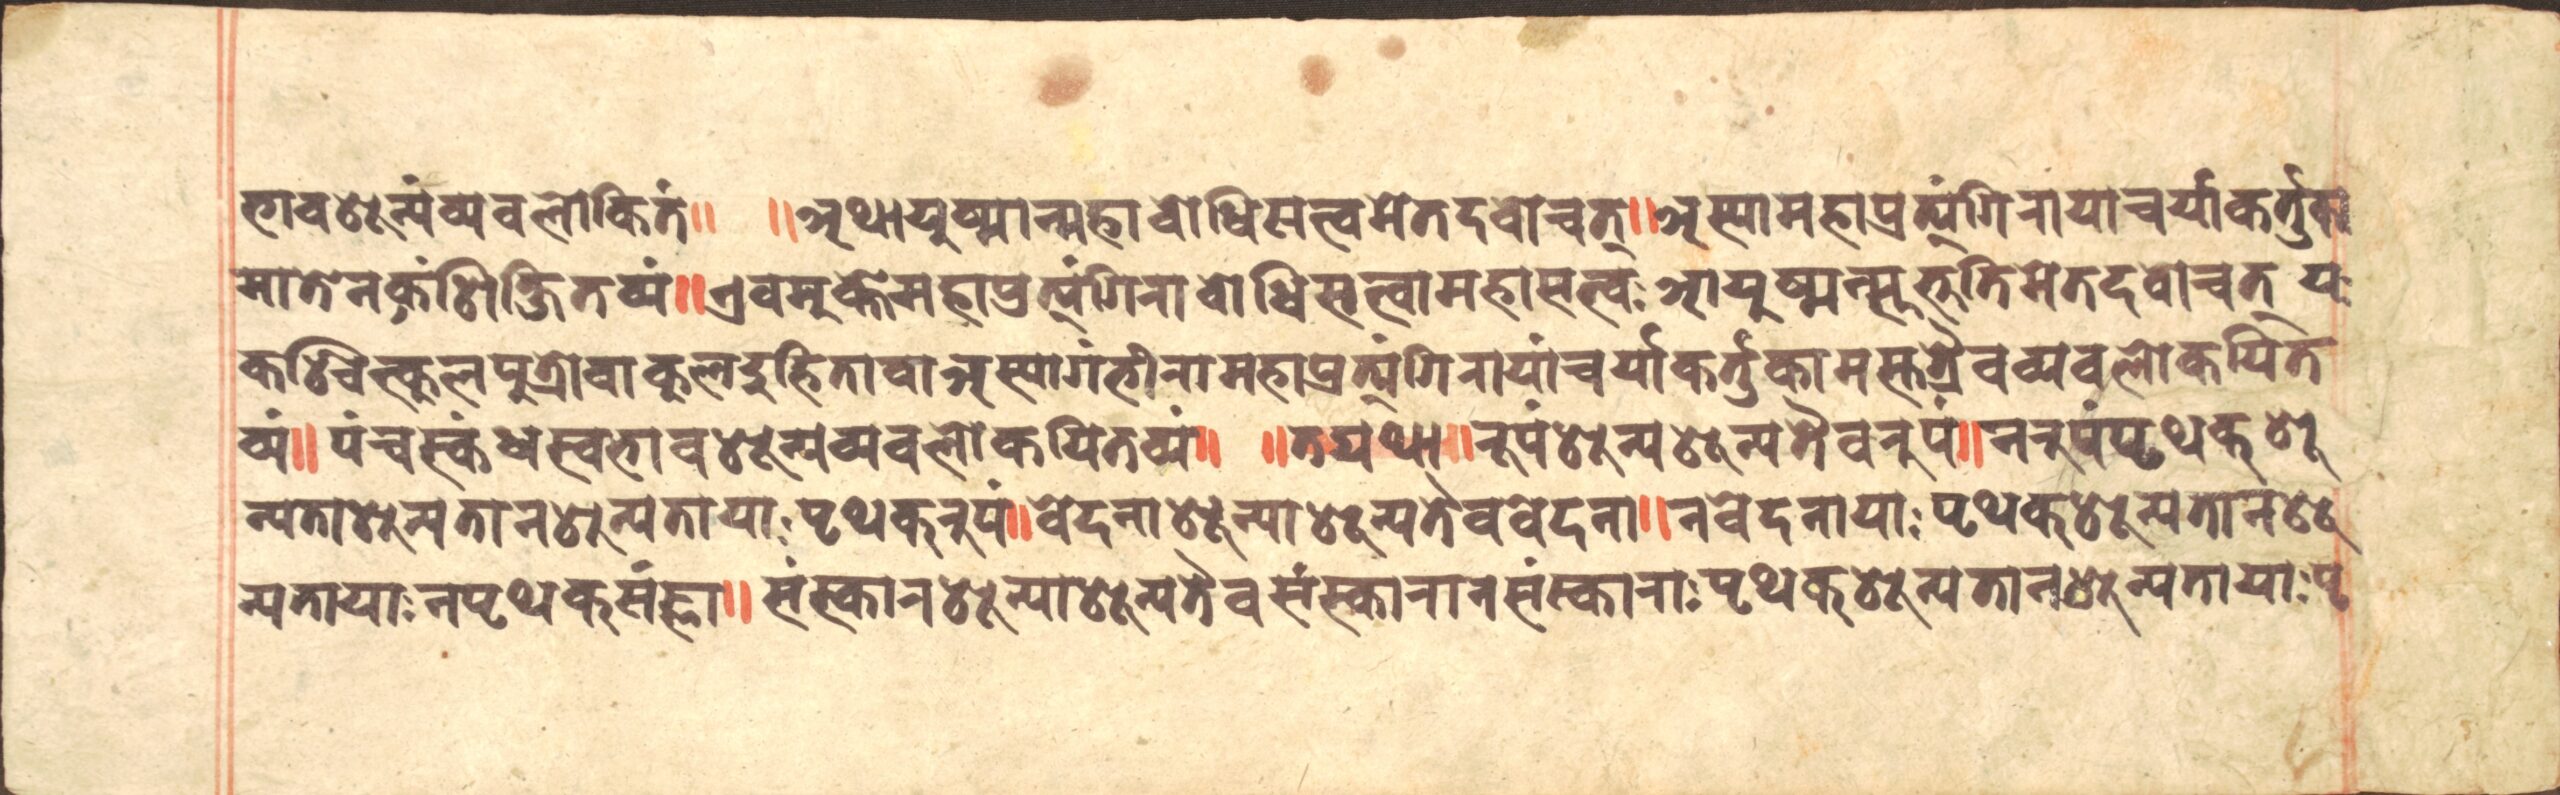 भावशून्यंव्यवलोकितं॥ ॥अथायुष्मान्महाबोधिसत्वमेतदवोचत्॥अस्यामहाप्रत्यंगिरायाचर्याकर्तुका
मातेनकंशिक्षितव्यं॥एवमुक्तेमहाप्रत्यंगिराबोधिसत्वामहासत्वः आयुष्मन्सुभुतिमेतदवोचत् यः
कश्चित्कुलपुत्रोवाकुलदुहितावाअस्यागंभीरामहाप्रत्यंगिरायांचर्याकर्तुकामस्तत्रैवव्यवलोकयित
व्यं॥पंचस्कंधस्वभावशून्यव्यवलोकयितव्यं॥ ॥तद्यथा॥रूपंशून्यशून्यतैवरुपं॥नरुपंपृथक्शू
न्यताशून्यतानशून्यतायाःपृथक्रुपं॥वेदनाशून्याशून्यतैववेदना॥नवेदनायाःपृथक्शून्यतानशू
न्यतायाःनपृथक्संज्ञा॥संस्कारशून्याशून्यतैवसंस्कारानसंस्काराःपृथक्शून्यतानशून्यतायाःपृ